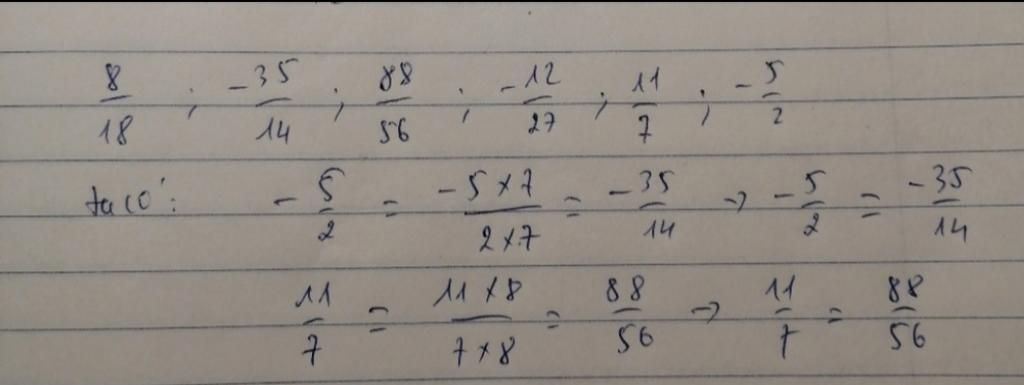 8/18 ; -35/14 ; 88/56 ; -12/27 ; 11/7 ; -5/2
ta có: -5/2 = -5x7/2x7 = -35/14 → -5/2 = -35/14
11/7 = 11x8/7x8 = 88/56 → 11/7 = 88/56